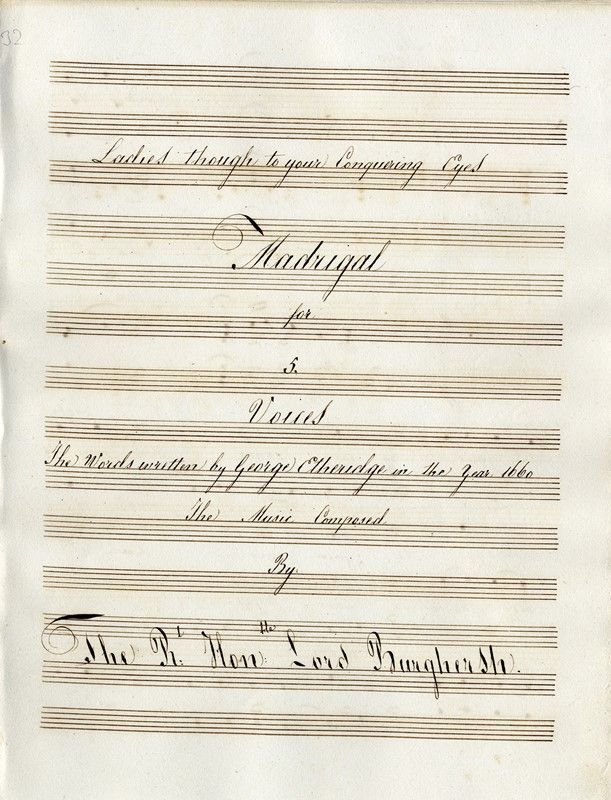 92
Ladies though to your Conquering Eyes
Madrigal
for
5.
Voices
The Words written by George Etheridge in the Year 1660
The Music Composed
By.
The Rt. Honble Lord Burghersh.